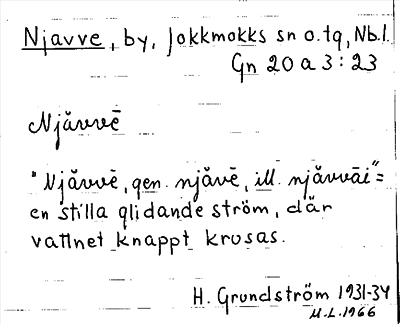 Njavve, by, Jokkmokks sn o. tg, Nb.l.
Gn 20 a 3:23
Njăvvē
"Njăvvē, gen. njăvē, ill. njăvvāi" =
en stilla glidande ström, där
vattnet knappt krusas.
H. Grundström 1931-34
M.L. 1966